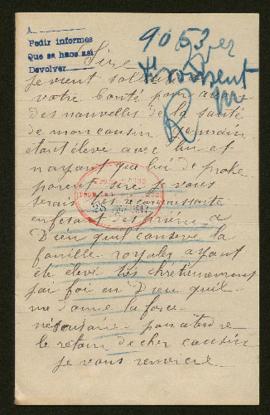 Pedir informes
Que se hace así
Devolver
9053
R
Sire
Je vient
votre Bonté pour
des nouvelles de la santé
de mon cousin
étant élevé avec lui et
n'ayant que lui de proche
parent sire je vous
serais très reconnaissante
en fesant des prières a
Dieu qu'il conserve la
famille royales ayant
été élevé très chrétiennement
jai foi en Dieu qu'il
me donne la force
pour atendre
le retour de cher cousin
je vous remercie